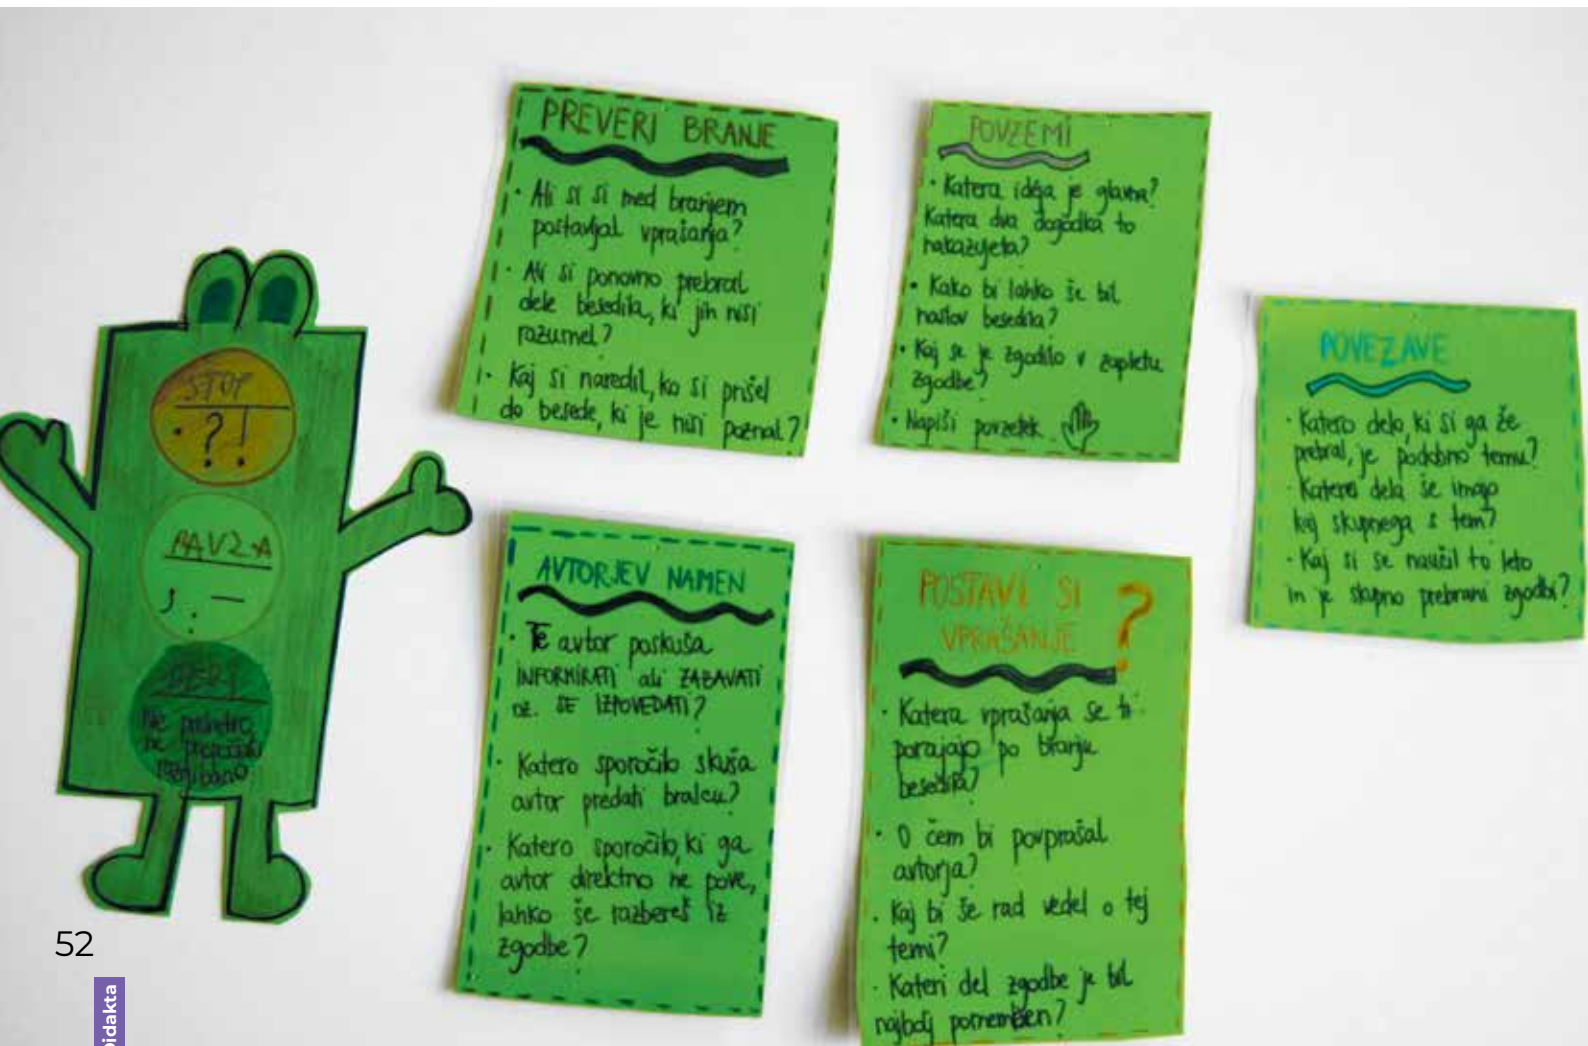 PREVERI BRANJE
• Ali si si med branjem
postavljal vprašanja?
• Ali si ponovno prebral
dele besedila, ki jih nisi
razumel?
• Kaj si naredil, ko si prišel
do besede, ki je nisi poznal?
POVZEMI
• Katera ideja je glavna?
Katera dva dogodka to
nakazujeta?
• Kako bi lahko še bil
naslov besedila?
• Kaj se je zgodilo v zapletu
zgodbe?
• Napiši povzetek
POVEZAVE
• Katero delo, ki si ga že
prebral, je podobno temu?
• Katera dela še imajo
kaj skupnega s tem?
• Kaj si se naučil to leto
in je skupno prebrani zgodbi?
STOP
. ? !
PAVZA
, : —
ne prehitro,
ne prepočasi
AVTORJEV NAMEN
• Te avtor poskuša
INFORMIRATI ali ZABAVATI
oz. SE IZPOVEDATI?
• Katero sporočilo skuša
avtor predati bralcu?
• Katero sporočilo, ki ga
avtor direktno ne pove,
lahko še razbereš iz
zgodbe?
POSTAVI SI
VPRAŠANJE ?
• Katera vprašanja se ti
porajajo po branju
besedila?
• O čem bi povprašal
avtorja?
• Kaj bi še rad vedel o tej
temi?
• Kateri del zgodbe je bil
najbolj pomemben?
52
Didakta